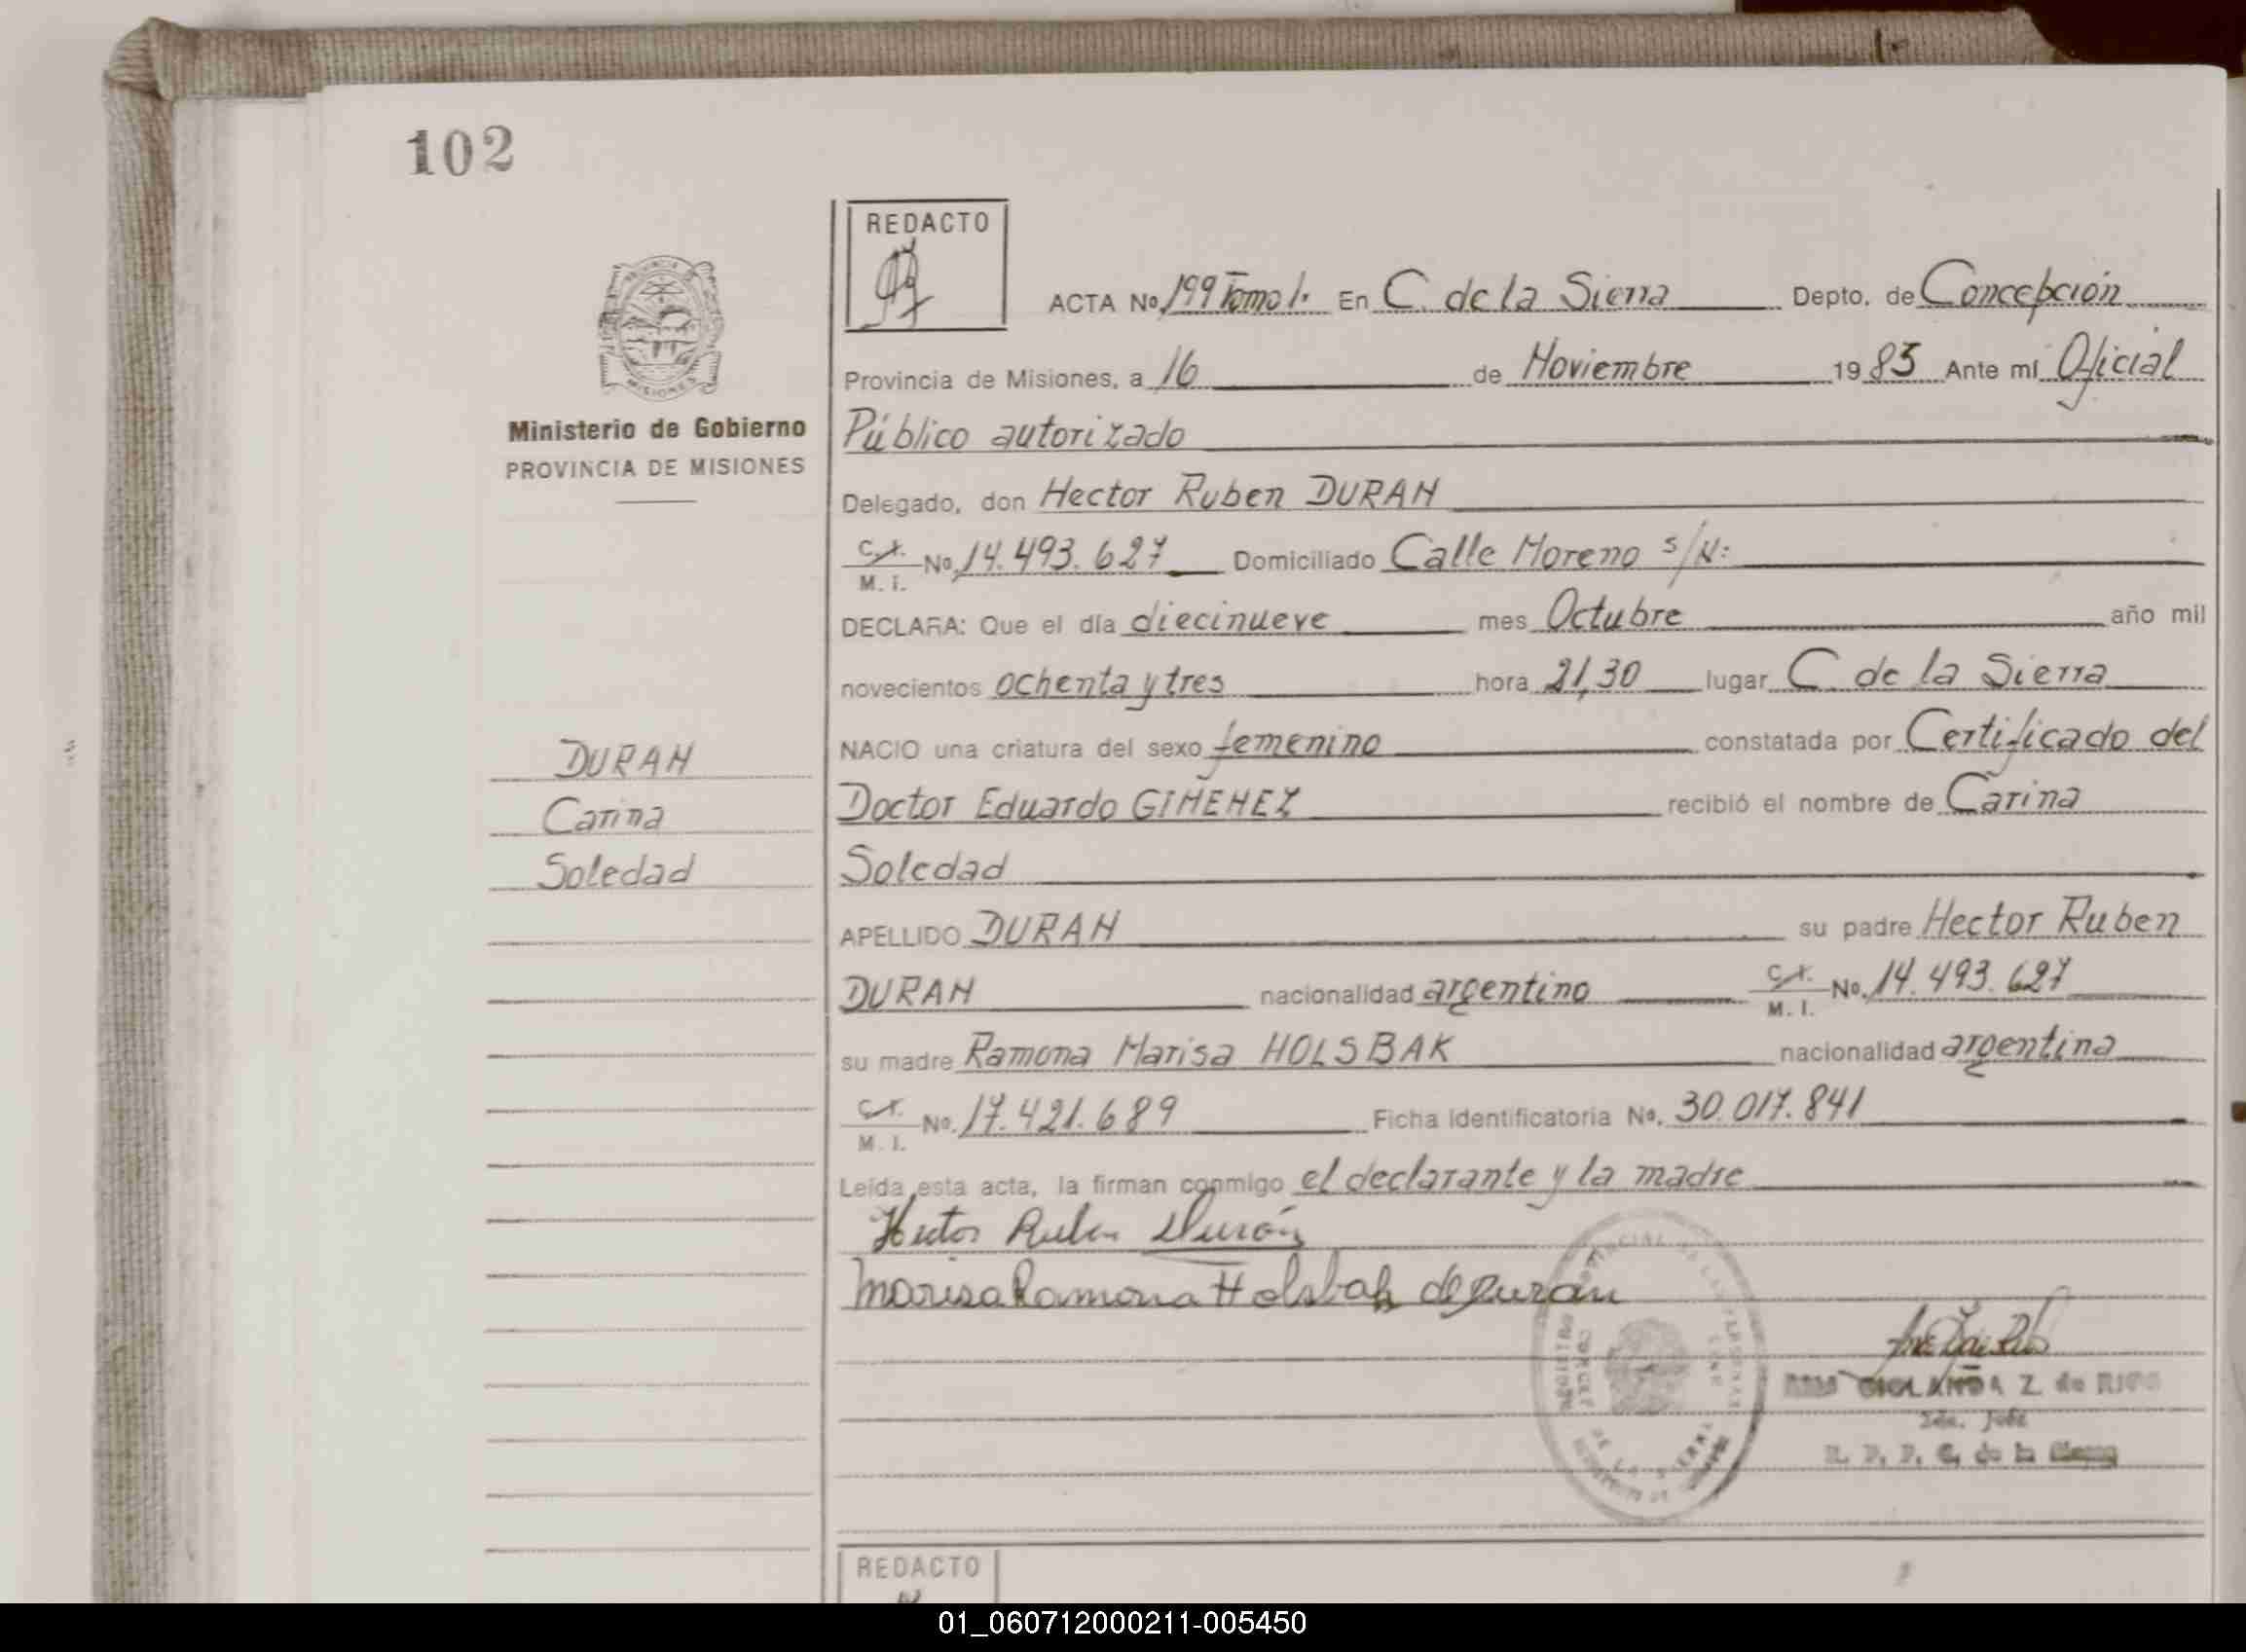 102
REDACTO
ACTA No. 199 Tomo 1. En C. de la Sierra Depto. de Concepción
Provincia de Misiones, a 16 de Noviembre 1983 Ante mí Oficial
Ministerio de Gobierno
PROVINCIA DE MISIONES
Público autorizado
Delegado, don Hector Ruben DURAN
C.I. M. I. No. 14.493.627 Domiciliado Calle Moreno s/N:
DECLARA: Que el día diecinueve mes Octubre año mil
novecientos ochenta y tres hora 21,30 lugar C. de la Sierra
DURAN
Carina
Soledad
NACIO una criatura del sexo femenino constatada por Certificado del
Doctor Eduardo GIMENEZ recibió el nombre de Carina
Soledad
APELLIDO DURAN su padre Hector Ruben
DURAN nacionalidad argentino C.I. M. I. No. 14.493.627
su madre Ramona Marisa HOLSBAK nacionalidad argentina
C.I. M. I. No. 17.421.689 Ficha identificatoria No. 30.017.841
Leída esta acta, la firman conmigo el declarante y la madre
Hector Ruben Durán
Marisa Ramona Holsbak de Duran
Z. de
de la
REDACTO
01_060712000211-005450